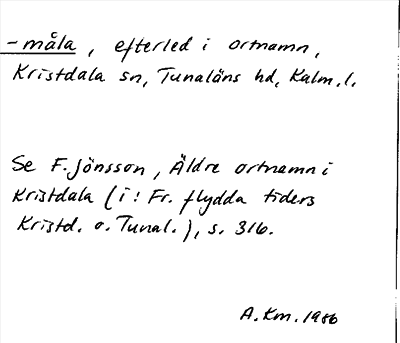 -måla, efterled i ortnamn,
Kristdala sn, Tunaläns hd, Kalm. l.
Se F. Jönsson, Äldre ortnamn i
Kristdala (i: Fr. flydda tiders
Kristd. o. Tunal.), s. 316.
A. Km. 1986